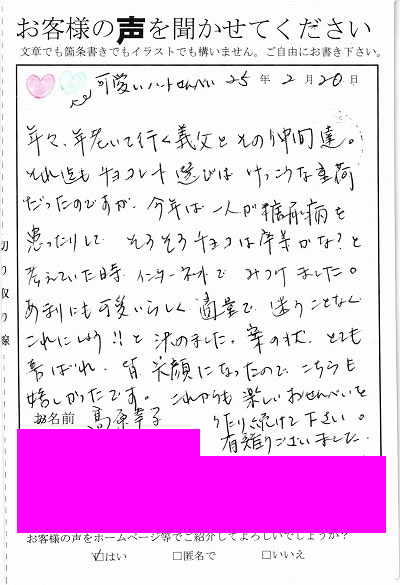 お客様の声を聞かせてください
文章でも箇条書きでもイラストでも構いません。ご自由にお書き下さい。
可愛いハートせんべい 25年2月20日
年々、年老いて行く義父とその仲間達。
それ迄もチョコレート選びはけっこうな重荷
だったのですが、今年は一人が糖尿病を
患ったりして そろそろチョコは卒業かな?と
考えていた時、インターネットでみつけました。
あまりにも可愛いらしく適量で、迷うことなく
これにしよう!!と決めました。案の状、とても
喜ばれ、皆笑顔になったので、こちらも
嬉しかったです。これからも楽しいおせんべいを
お名前 高原幸子 作り続けて下さい。
有難うございました。
お客様の声をホームページ等でご紹介してよろしいでしょうか?
☑はい □匿名で □いいえ
切り取り線